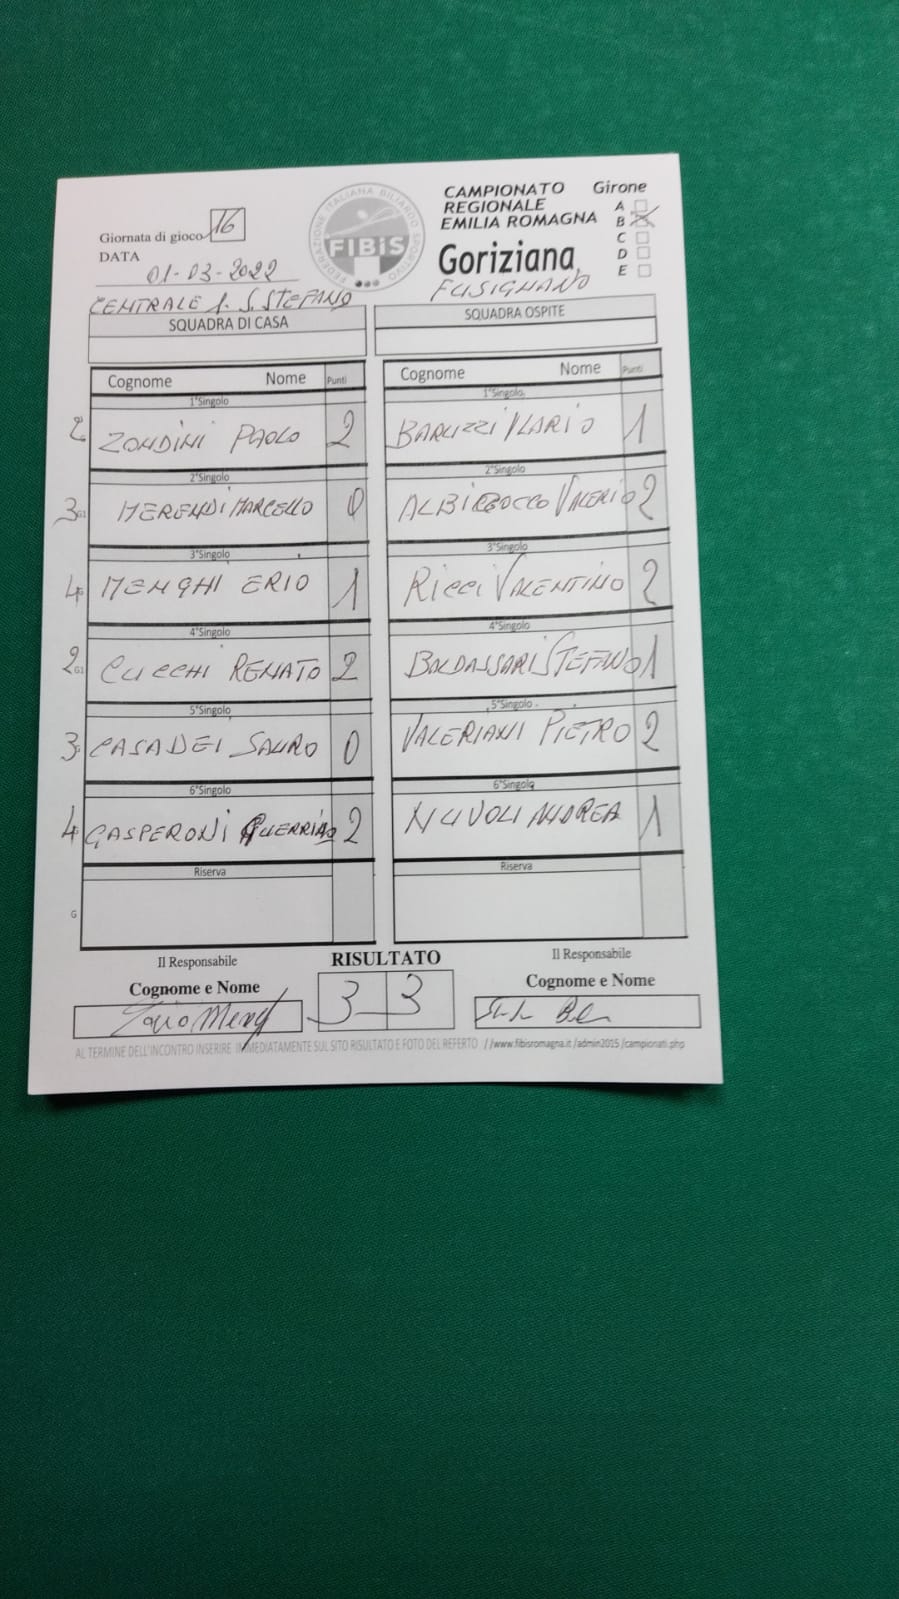 Giornata di gioco 16
DATA
01-03-2022
FEDERAZIONE ITALIANA BILIARDO SPORTIVO
FIBiS
CAMPIONATO
REGIONALE
EMILIA ROMAGNA
Goriziana
Girone
A
B
C
D
E
CENTRALE S. STEFANO
FUSIGNANO
SQUADRA DI CASA
SQUADRA OSPITE
Cognome Nome Punti
Cognome Nome Punti
1°Singolo
1°Singolo
2 ZONDINI PAOLO 2
BARUZZI ILARIO 1
2°Singolo
2°Singolo
3 G1 MERENDI MARCELLO 0
ALBIROCCO VALERIO 2
3°Singolo
3°Singolo
4 MENGHI ERIO 1
RICCI VALENTINO 2
4°Singolo
4°Singolo
2 G1 CUCCHI RENATO 2
BALDASSARI STEFANO 1
5°Singolo
5°Singolo
3 CASADEI SAURO 0
VALERIANI PIETRO 2
6°Singolo
6°Singolo
4 GASPERONI GUERRINO 2
NUVOLI ANDREA 1
Riserva
Riserva
G
Il Responsabile
RISULTATO
Il Responsabile
Cognome e Nome
3 3
Cognome e Nome
AL TERMINE DELL'INCONTRO INSERIRE IMMEDIATAMENTE SUL SITO RISULTATO E FOTO DEL REFERTO //www.fibisromagna.it/admin2015/campionati.php